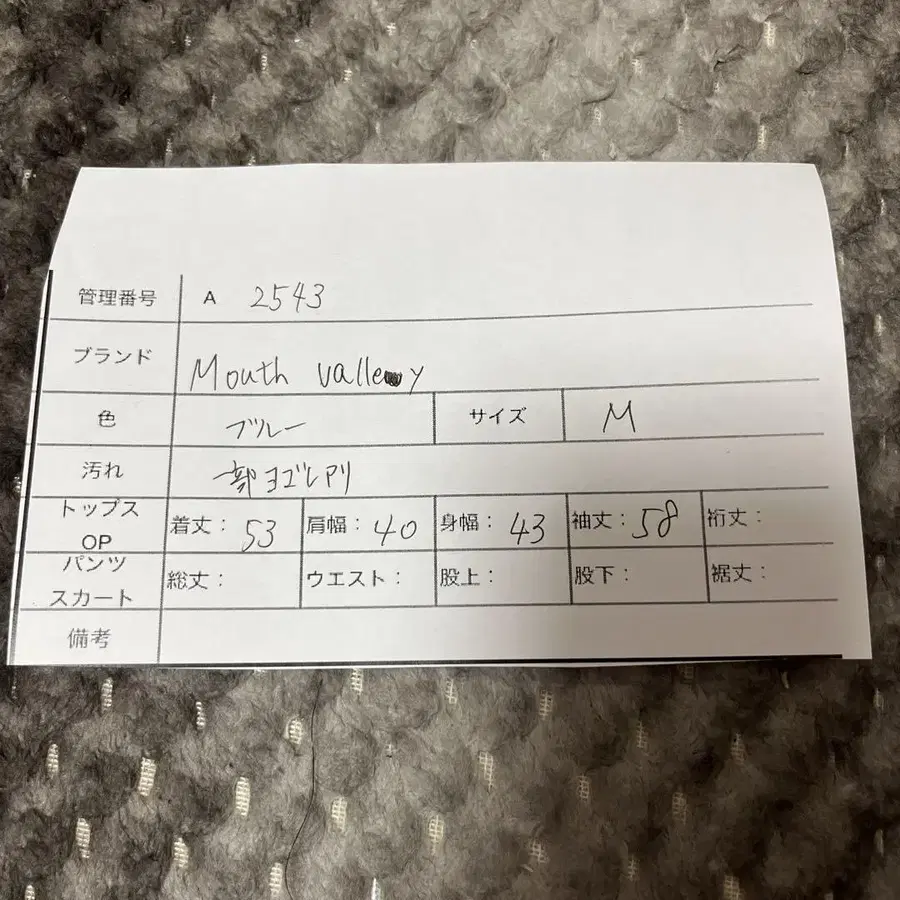 管理番号 A 2543
ブランド Mouth valley
色 ブルー サイズ M
汚れ 一部ヨゴレアリ
トップス OP 着丈: 53 肩幅: 40 身幅: 43 袖丈: 58 裄丈:
パンツ スカート 総丈: ウエスト: 股上: 股下: 裾丈:
備考